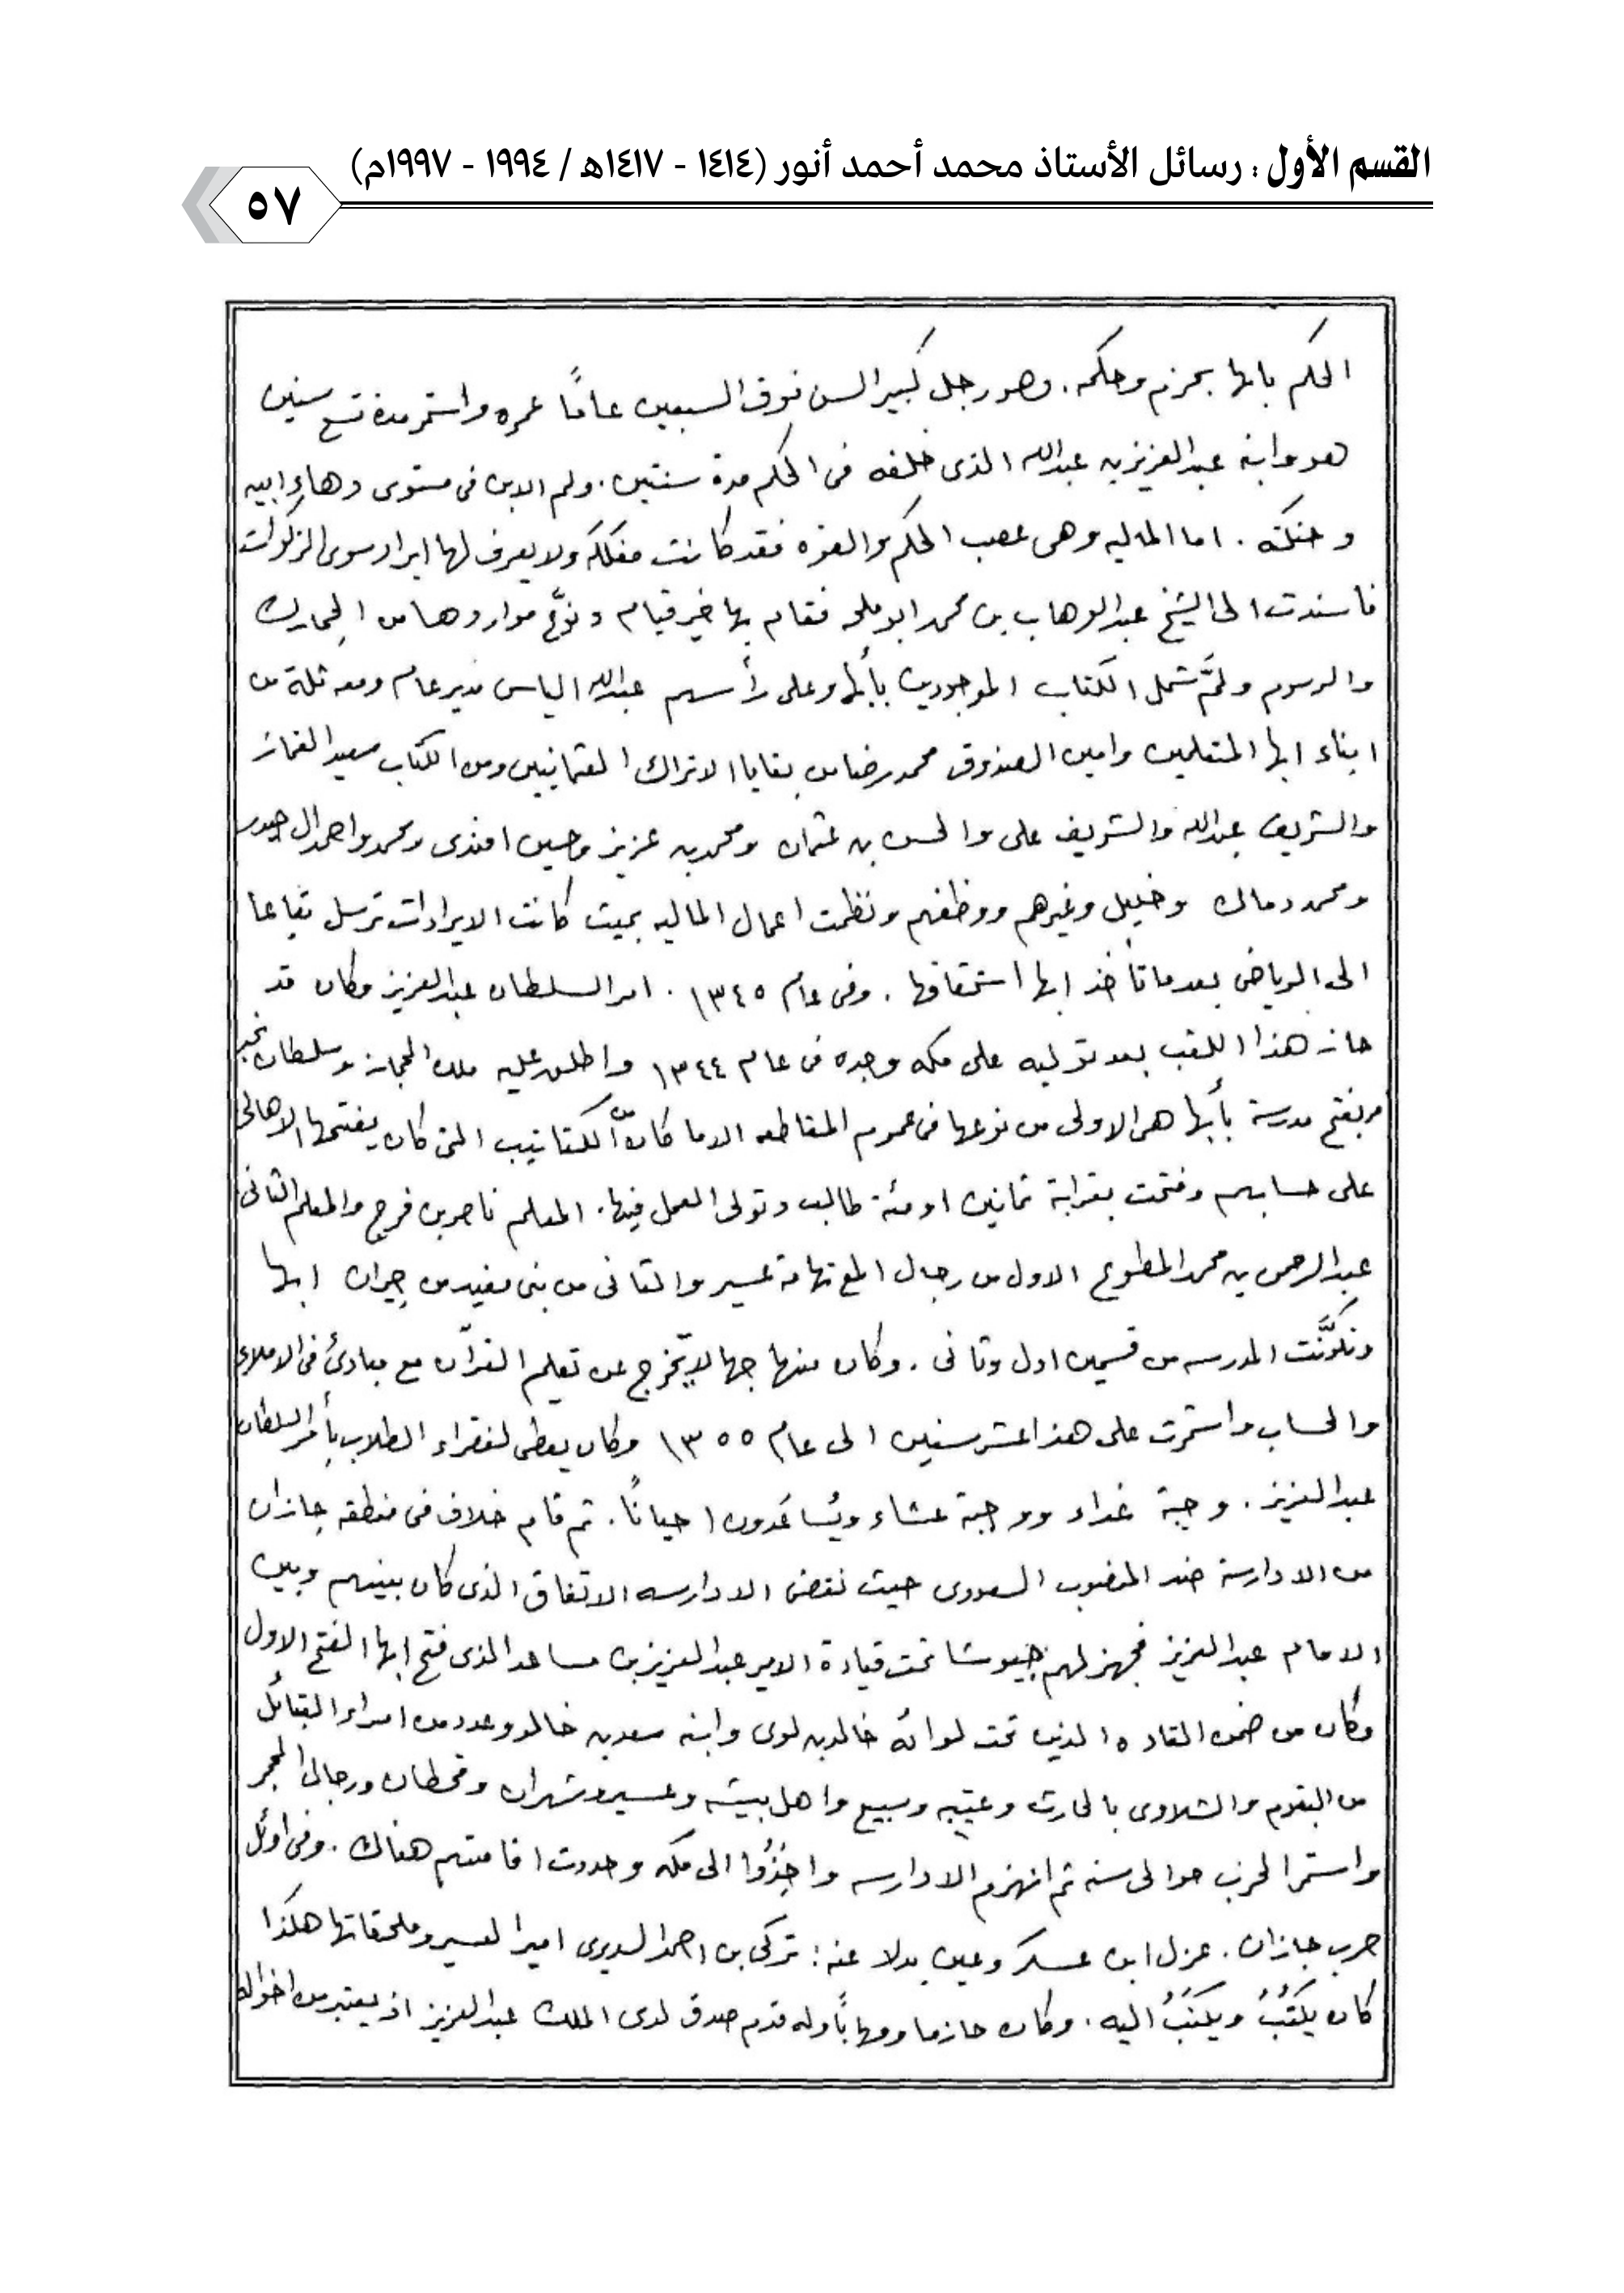 القسم الأول : رسائل الأستاذ محمد أحمد أنور (١٤١٤ - ١٤١٧هـ / ١٩٩٤ - ١٩٩٧م)
٥٧
الحكم بابها بحزم وحكمه . وهو رجل كبير السن فوق السبعين عاماً عمره واستمر مدة تسع سنين
هو وابنه عبدالعزيز بن عبدالله الذى خلفه فى الحكم مدة سنتين . ولم الابن فى مستوى دهاء ابيه
وحنكته . اما الماليه وهى عصب الحكم والعزه فقد كانت مفككه ولا يعرف لها ايراد سوى الزكوات
فاسندت الى الشيخ عبدالوهاب بن محمد ابو ملحه فقام بها خير قيام ونوَّع مواردها من الجمارك
والرسوم ولمَّ شمل الكتاب الموجودين بأبها وعلى رأسهم عبدالله الياس مدير عام ومعه ثلة من
ابناء ابها المتعلمين وامين الصندوق محمد رضا من بقايا الاتراك العثمانيين ومن الكتاب سعيد الغماز
والشريف عبدالله والشريف على والحسن بن عثمان ومحمد بن عزيز وحسين افندى ومحمد واحمد ال
ومحمد دماك وخليل وغيرهم ووظفهم ونظمت اعمال الماليه بحيث كانت الايرادات ترسل تباعا
الى الرياض بعد ما تأخذ ابها استحقاقها . وفى عام ١٣٤٥ . امر السلطان عبدالعزيز وكان قد
حاز هذا اللقب بعد توليه على مكه وجده فى عام ١٣٤٤ واطلق عليه ملك الحجاز وسلطان نجد
بفتح مدرسة بأبها هى الاولى من نوعها فى عموم المقاطعه الا ما كان من الكتاتيب التى كان يفتحها الاهالى
على حسابهم وفتحت بقرابة ثمانين او مئة طالب وتولى العمل فيها . المعلم ناصر بن فرج والمعلم الثانى
عبدالرحمن بن محمد المطوع الاول من رجال المع تهامة عسير والثانى من بنى مغيد من جيران ابها
وتكوَّنت المدرسه من قسمين اول وثانى . وكان منهاجها لا يخرج عن تعليم القرآن مع مبادئ فى الاملاء
والحساب واستمرت على هذا عشر سنين الى عام ١٣٥٥ وكان يعطى لفقراء الطلاب بأمر السلطان
عبدالعزيز . وجبة غداء ووجبة عشاء ويُساعَدون احياناً . ثم قام خلاف فى منطقه جازان
من الادارسة ضد المنصوب السعودى حيث نقض الادارسه الاتفاق الذى كان بينهم وبين
الامام عبدالعزيز فجهز لهم جيوشا تحت قيادة الامير عبدالعزيز بن مساعد الذى فتح ابها الفتح الاول
وكان من ضمن القاده الذين تحت لوائه خالد بن لوى وابنه سعد بن خالد وعدد من امراء القبائل
من البقوم والشلاوى بالحارث وعتيبه وسبيع واهل بيشه وعسير وشهران وقحطان ورجال الحجر
واستمر الحرب حوالى سنه ثم انهزم الادارسه واخِذُوا الى مكه وحددت اقامتهم هناك . وفى اوئل
حرب جازان . عزل ابن عسكر وعين بدلا عنه : تركى بن احمد السديرى اميرا لعسير وملحقاتها هكذا
كان يكتُبُ ويكتَبُ اليه . وكان حازما ومهاباً وله قدم صدق لدى الملك عبدالعزيز اذ يعتبر من اخواله